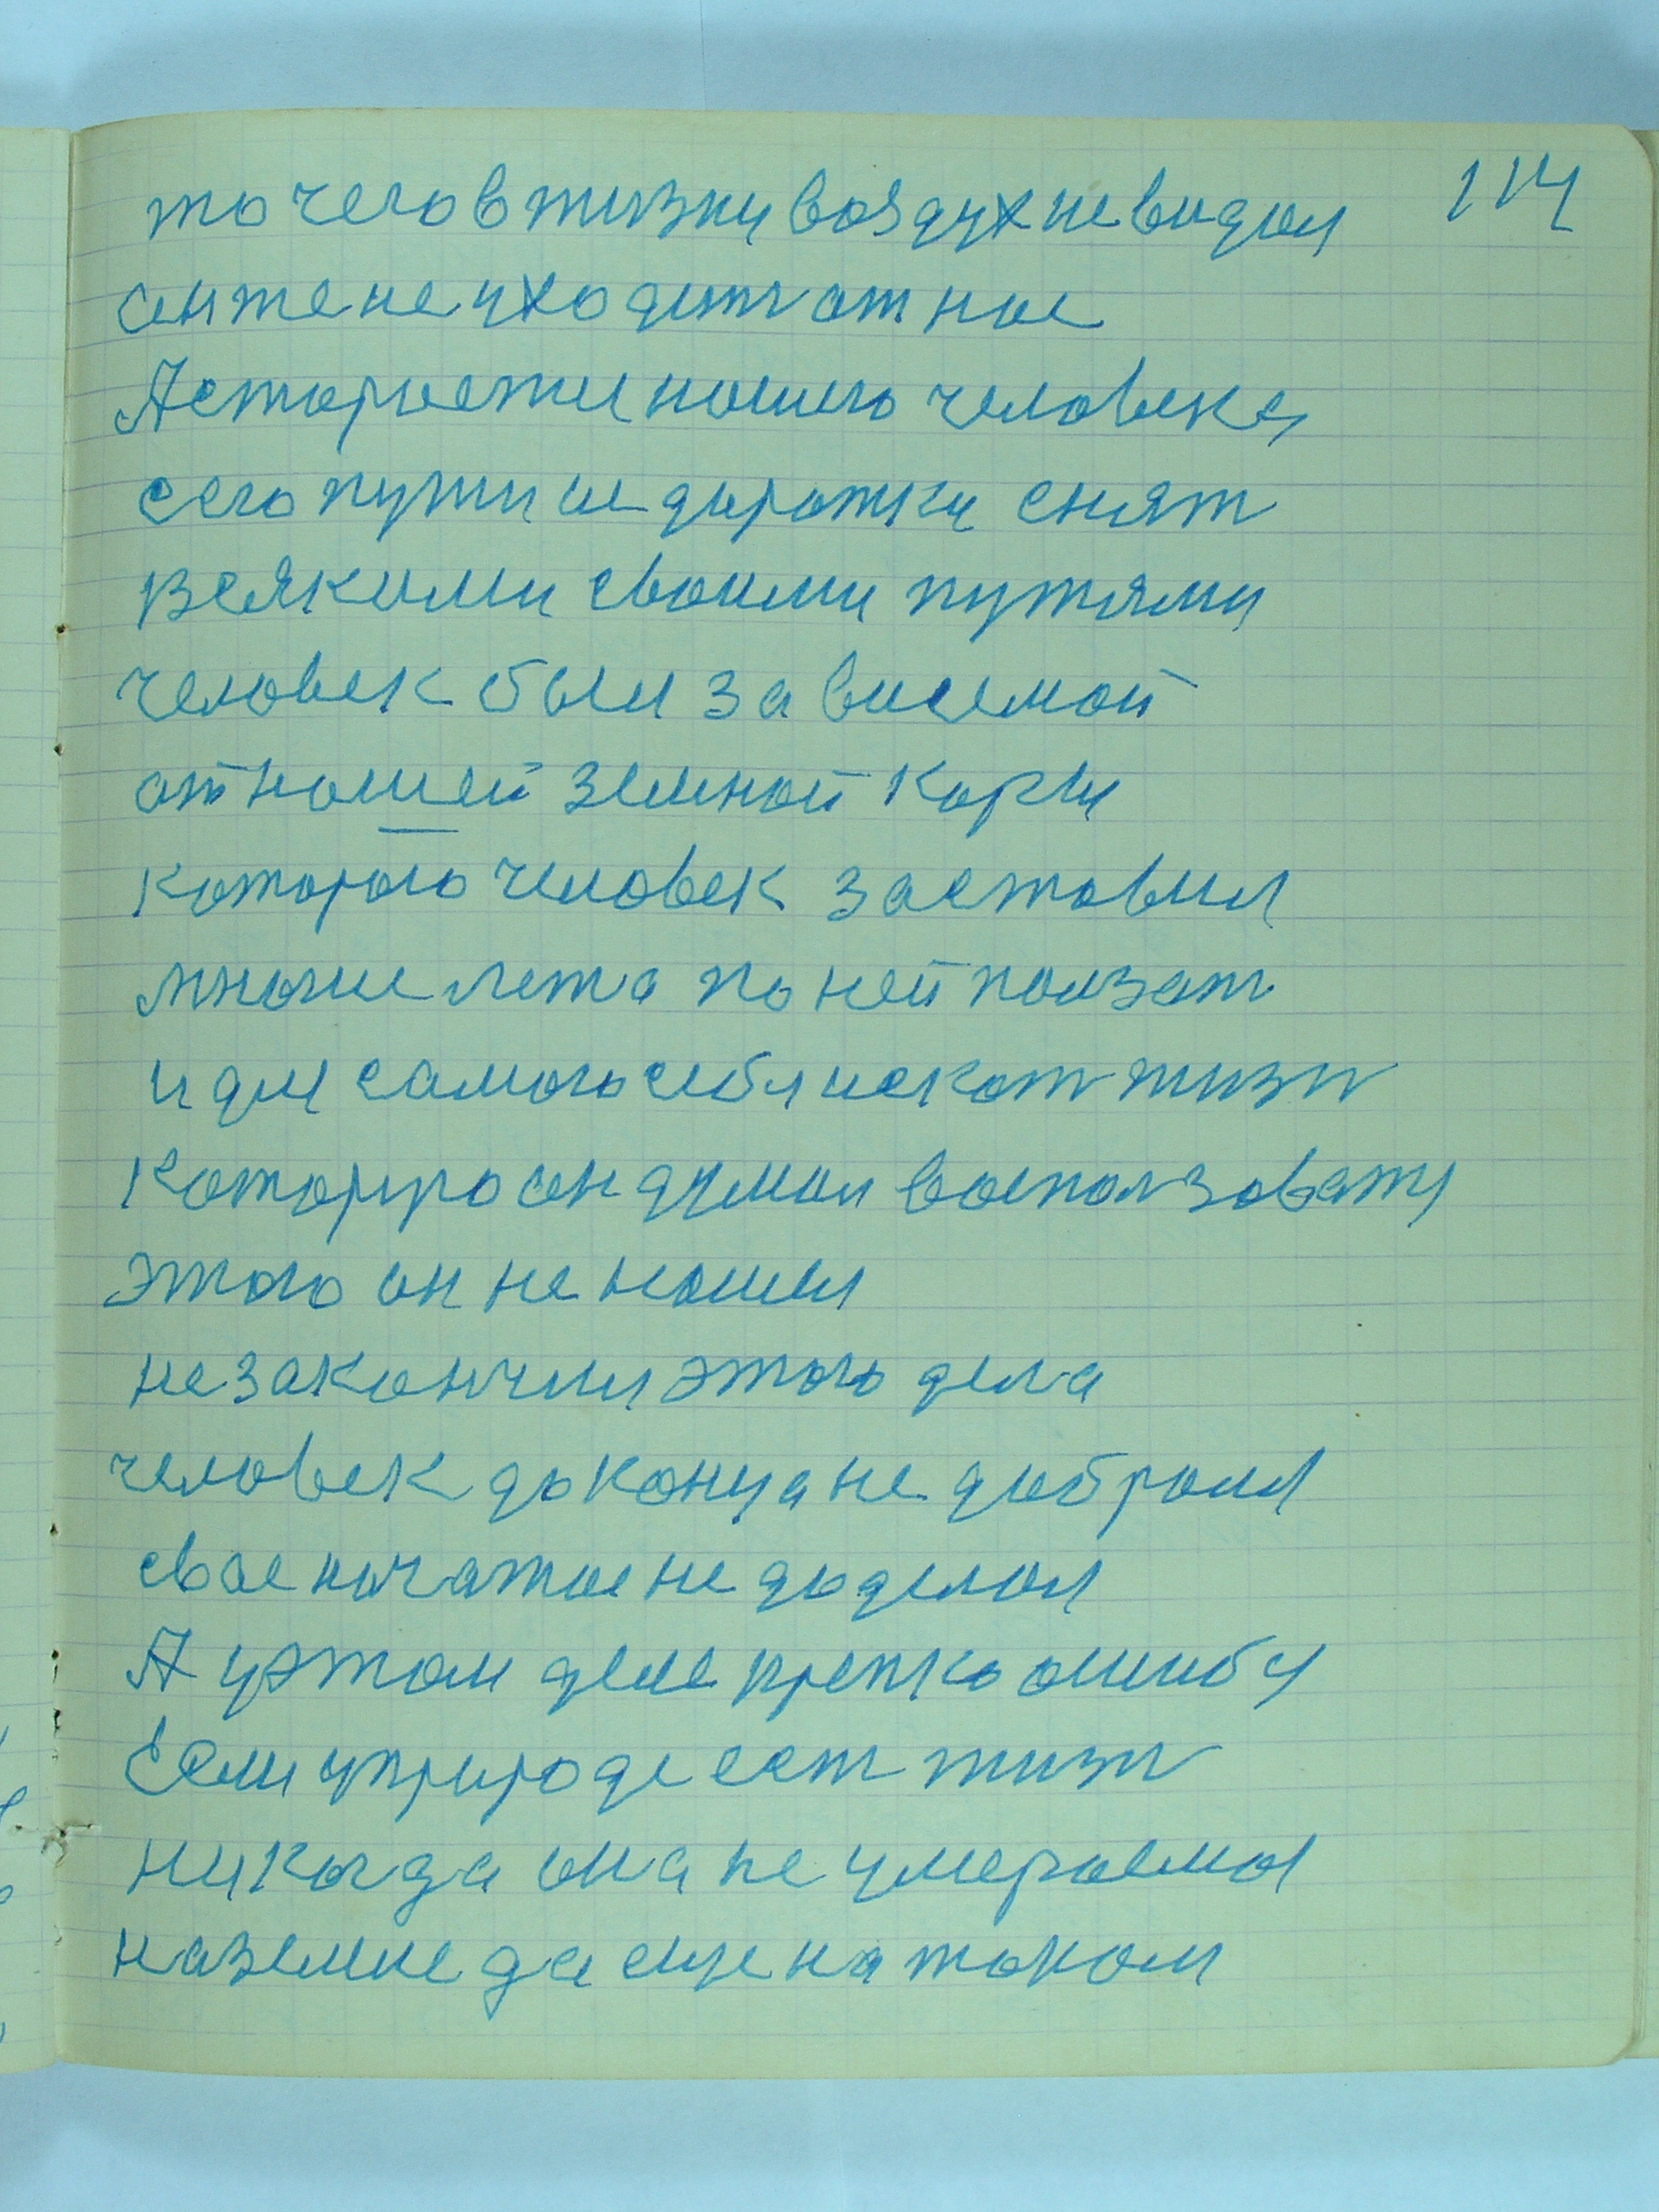 то чего в жизни воздух не видел 114
он же не уходить от нас
А старается нашего человека
с его пути и дорожки снят
Всякими своими путями
человек был зависемой
от нашей земной коры
которого человек заставил
многие лета по ней ползат
и для самого себя искат жизн
которую он думал воспользовати
этого он не нашел
не закончил этого дела
человек до конца не добрался
свое начатое не доделал
А у этом деле крепко ошибу
Если у природе ест жизн
никогда она не умерала
на земле да еще на таком